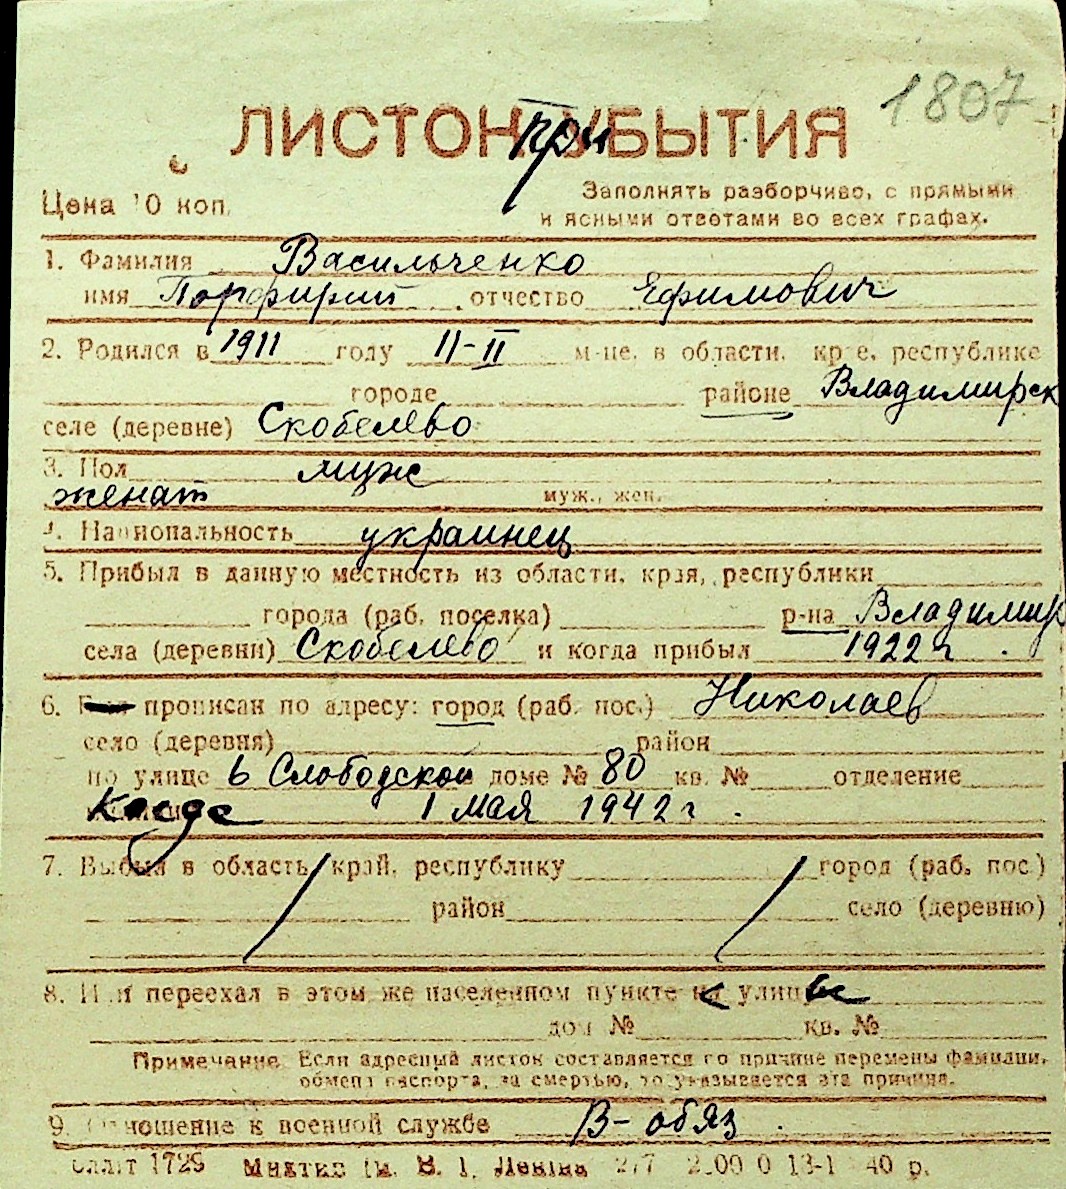 1807
ЛИСТОК УБЫТИЯ
при
Цена 10 коп.
Заполнять разборчиво, с прямыми
и ясными ответами во всех графах.
1. Фамилия Васильченко
имя Порфирий отчество Ефимович
2. Родился в 1911 году 11-II м-це, в области, крае, республике
городе районе Владимирск
селе (деревне) Скобелево
3. Пол муж
женат муж., жен.
4. Национальность украинец
5. Прибыл в данную местность из области, края, республики
города (раб. поселка) р-на Владимир
села (деревни) Скобелево и когда прибыл 1922 г.
6. прописан по адресу: город (раб. пос.) Николаев
село (деревня) район
по улице 6 Слободской доме № 80 кв. № отделение
1 мая 1942 г.
7. Выбыл в область, край, республику город (раб. пос.)
район село (деревню)
8. Или переехал в этом же населенном пункте на улицу
дом № кв. №
Примечание. Если адресный листок составляется по причине перемены фамилии,
обмена паспорта, за смертью, то указывается эта причина.
9. Отношение к военной службе В-обяз.
1729 им. В. І. Леніна 40 р.